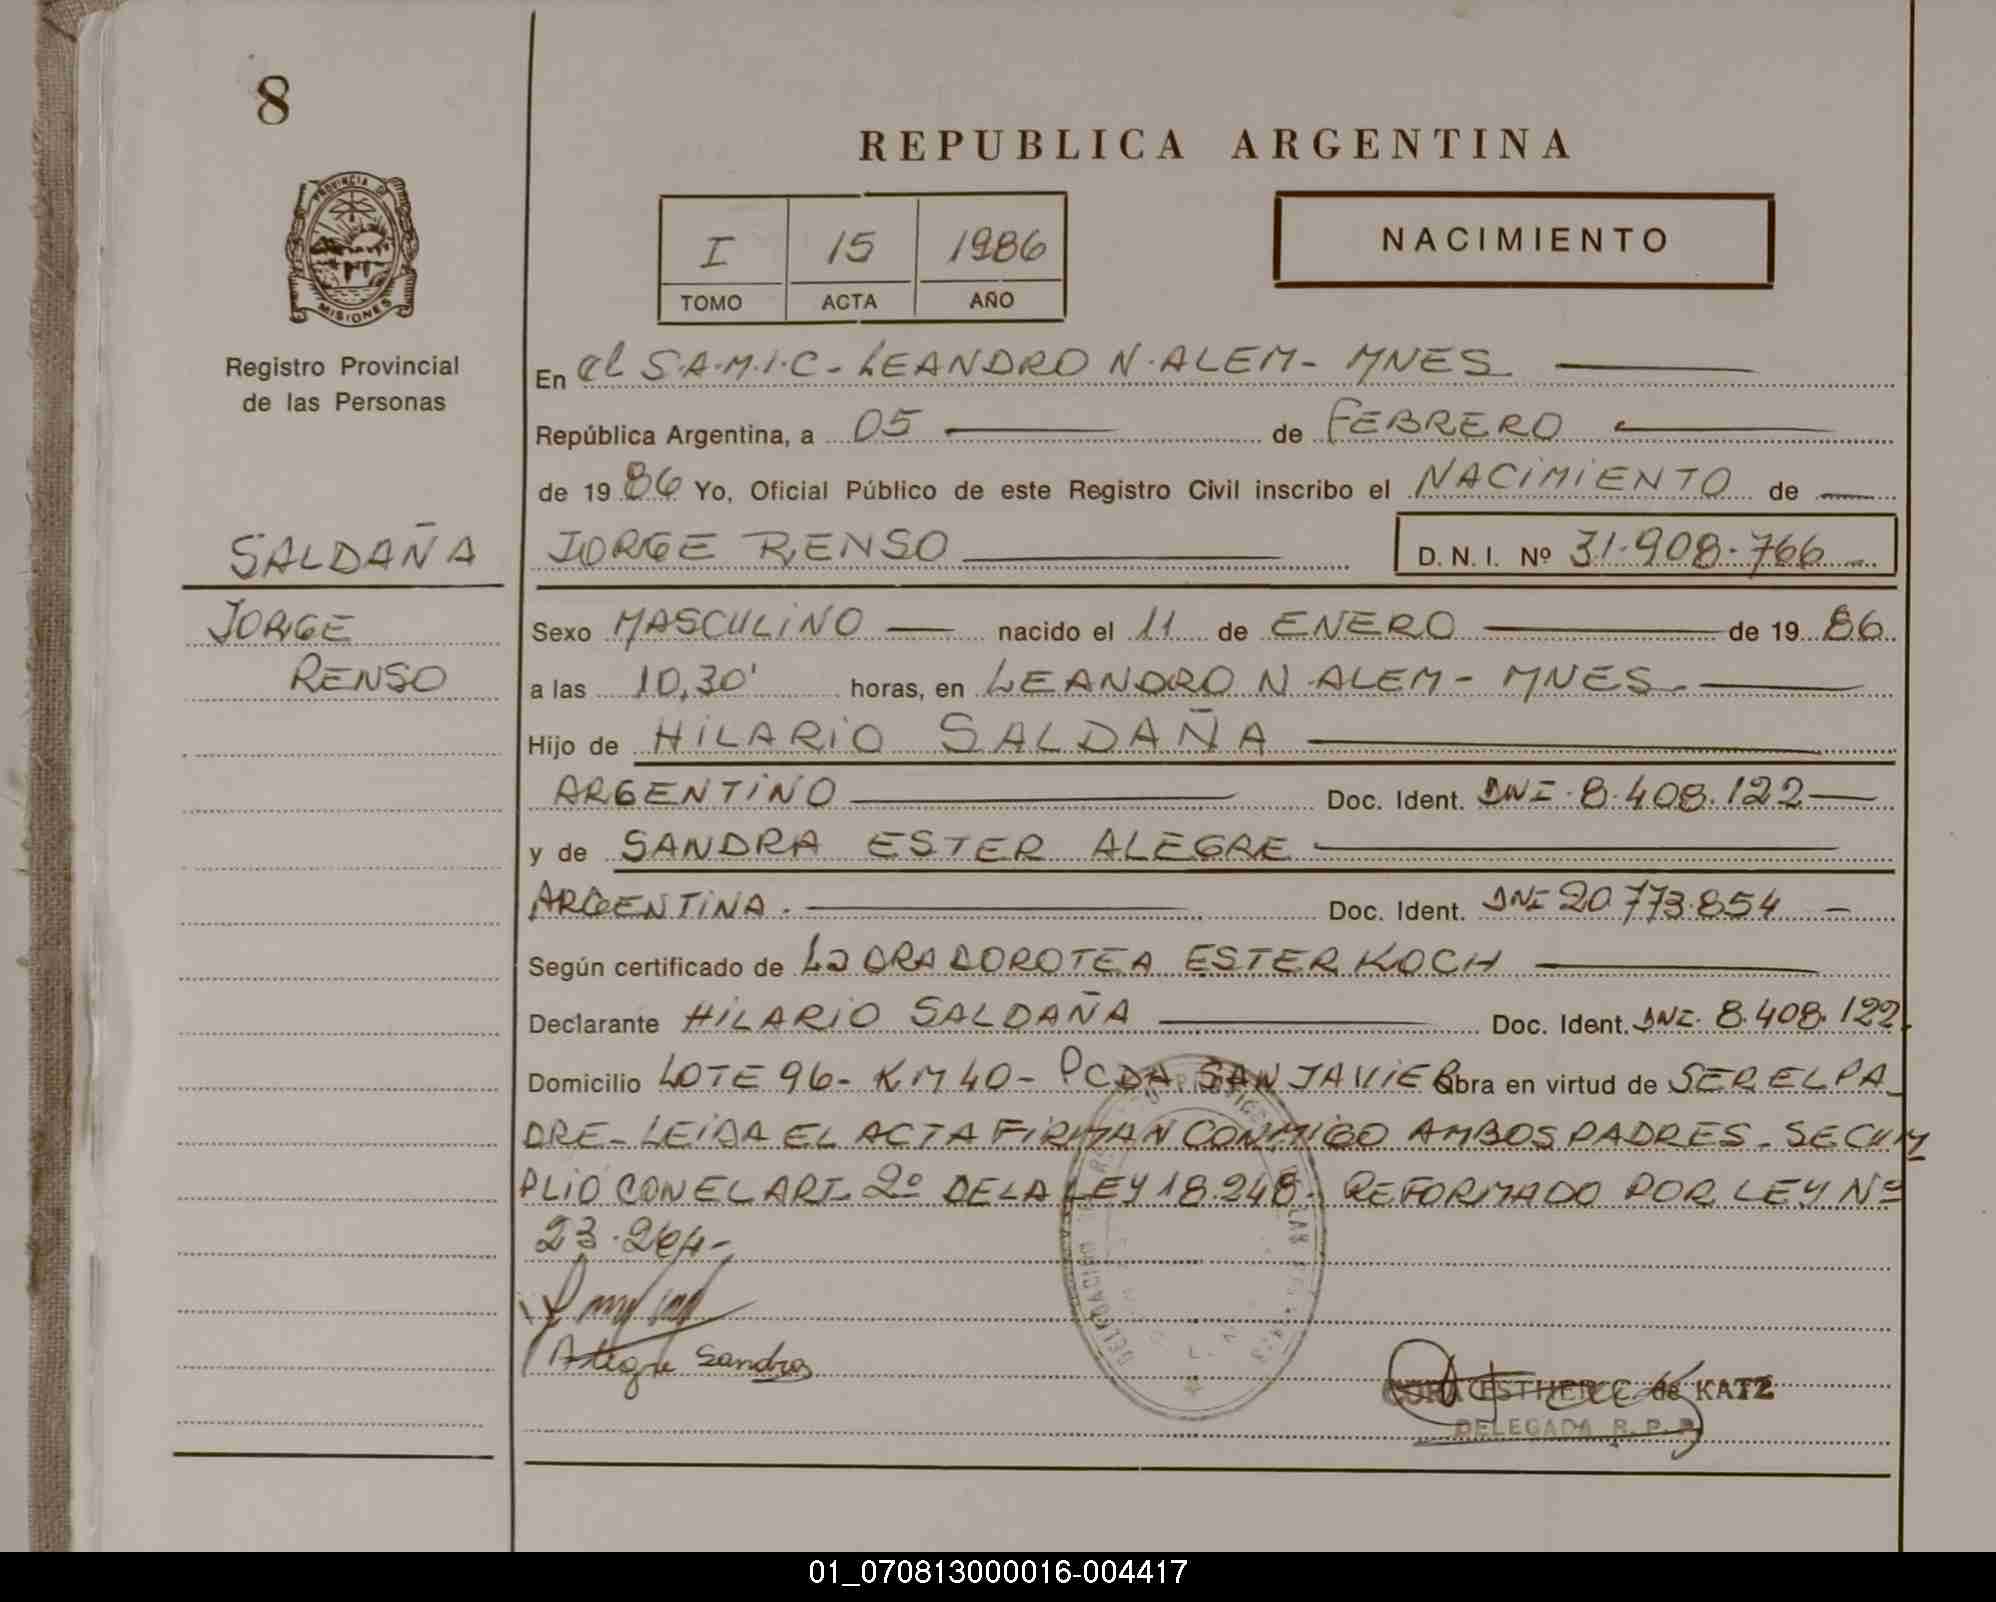 8
REPUBLICA ARGENTINA
PROVINCIA D
MISIONES
I 15 1986
TOMO ACTA AÑO
NACIMIENTO
Registro Provincial
de las Personas
En el S.A.M.I.C - LEANDRO N. ALEM - MNES
República Argentina, a 05 de FEBRERO
de 1986 Yo, Oficial Público de este Registro Civil inscribo el NACIMIENTO de
SALDAÑA
JORGE RENSO D. N. I. Nº 31.908.766
JORGE
RENSO
Sexo MASCULINO nacido el 11 de ENERO de 1986
a las 10,30' horas, en LEANDRO N. ALEM - MNES.
Hijo de HILARIO SALDAÑA
ARGENTINO Doc. Ident. DNI. 8.408.122
y de SANDRA ESTER ALEGRE
ARGENTINA. Doc. Ident. DNI 20.773.854
Según certificado de LA DRA DOROTEA ESTER KOCH
Declarante HILARIO SALDAÑA Doc. Ident. DNI. 8.408.122
Domicilio LOTE 96 - KM 40 - PCDA SAN JAVIER Obra en virtud de SER EL PA
DRE - LEIDA EL ACTA FIRMAN CONMIGO AMBOS PADRES. SE CUM
PLIO CON EL ART. 2º DE LA LEY 18.248. REFORMADO POR LEY Nº
23.264-
Alegre Sandra
ESTHER C. de KATZ
DELEGADA R. P. P.
01_070813000016-004417